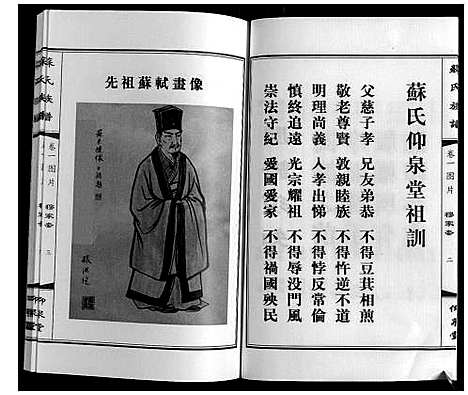 蘇氏族譜
卷一图片
穆家峦
二
仰泉堂
蘇氏仰泉堂祖訓
父慈子孝 兄友弟恭 不得豆萁相煎
敬老尊賢 敦親睦族 不得忤逆不道
明理尚義 入孝出悌 不得悖反常倫
慎終追遠 光宗耀祖 不得辱没門風
崇法守紀 愛國愛家 不得禍國殃民
先祖蘇軾畫像
蘇氏族譜
卷一图片
三
仰泉堂